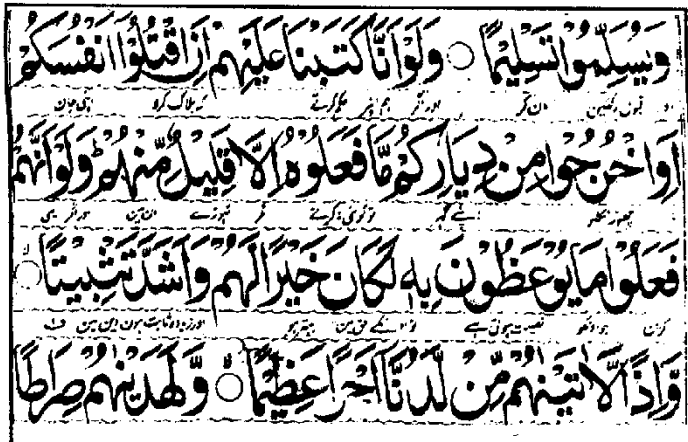 وَيُسَلِّمُوْا تَسْلِيْمًا ○ وَلَوْ اَنَّا كَتَبْنَا عَلَيْهِمْ اَنِ اقْتُلُوْٓا اَنْفُسَكُمْ
اور قبول رکھیں مان کر اور اگر ہم ان پر حکم کرتے کہ ہلاک کرو اپنی جان
اَوِ اخْرُجُوْا مِنْ دِيَارِكُمْ مَّا فَعَلُوْهُ اِلَّا قَلِيْلٌ مِّنْهُمْ ۭ وَلَوْ اَنَّهُمْ
چھوڑ نکلو اپنے گھر تو کوئی نہ کرتے مگر تھوڑے ان میں اور اگر یہی
فَعَلُوْا مَا يُوْعَظُوْنَ بِهٖ لَكَانَ خَيْرًا لَّهُمْ وَاَشَدَّ تَثْبِيْتًا ○
کریں جو انکو نصیحت ہوتی ہے تو انکے حق میں بہتر ہو اور زیادہ ثابت ہوں دین میں
وَّاِذًا لَّاٰتَيْنٰهُمْ مِّنْ لَّدُنَّآ اَجْرًا عَظِيْمًا ○ وَّلَهَدَيْنٰهُمْ صِرَاطًا